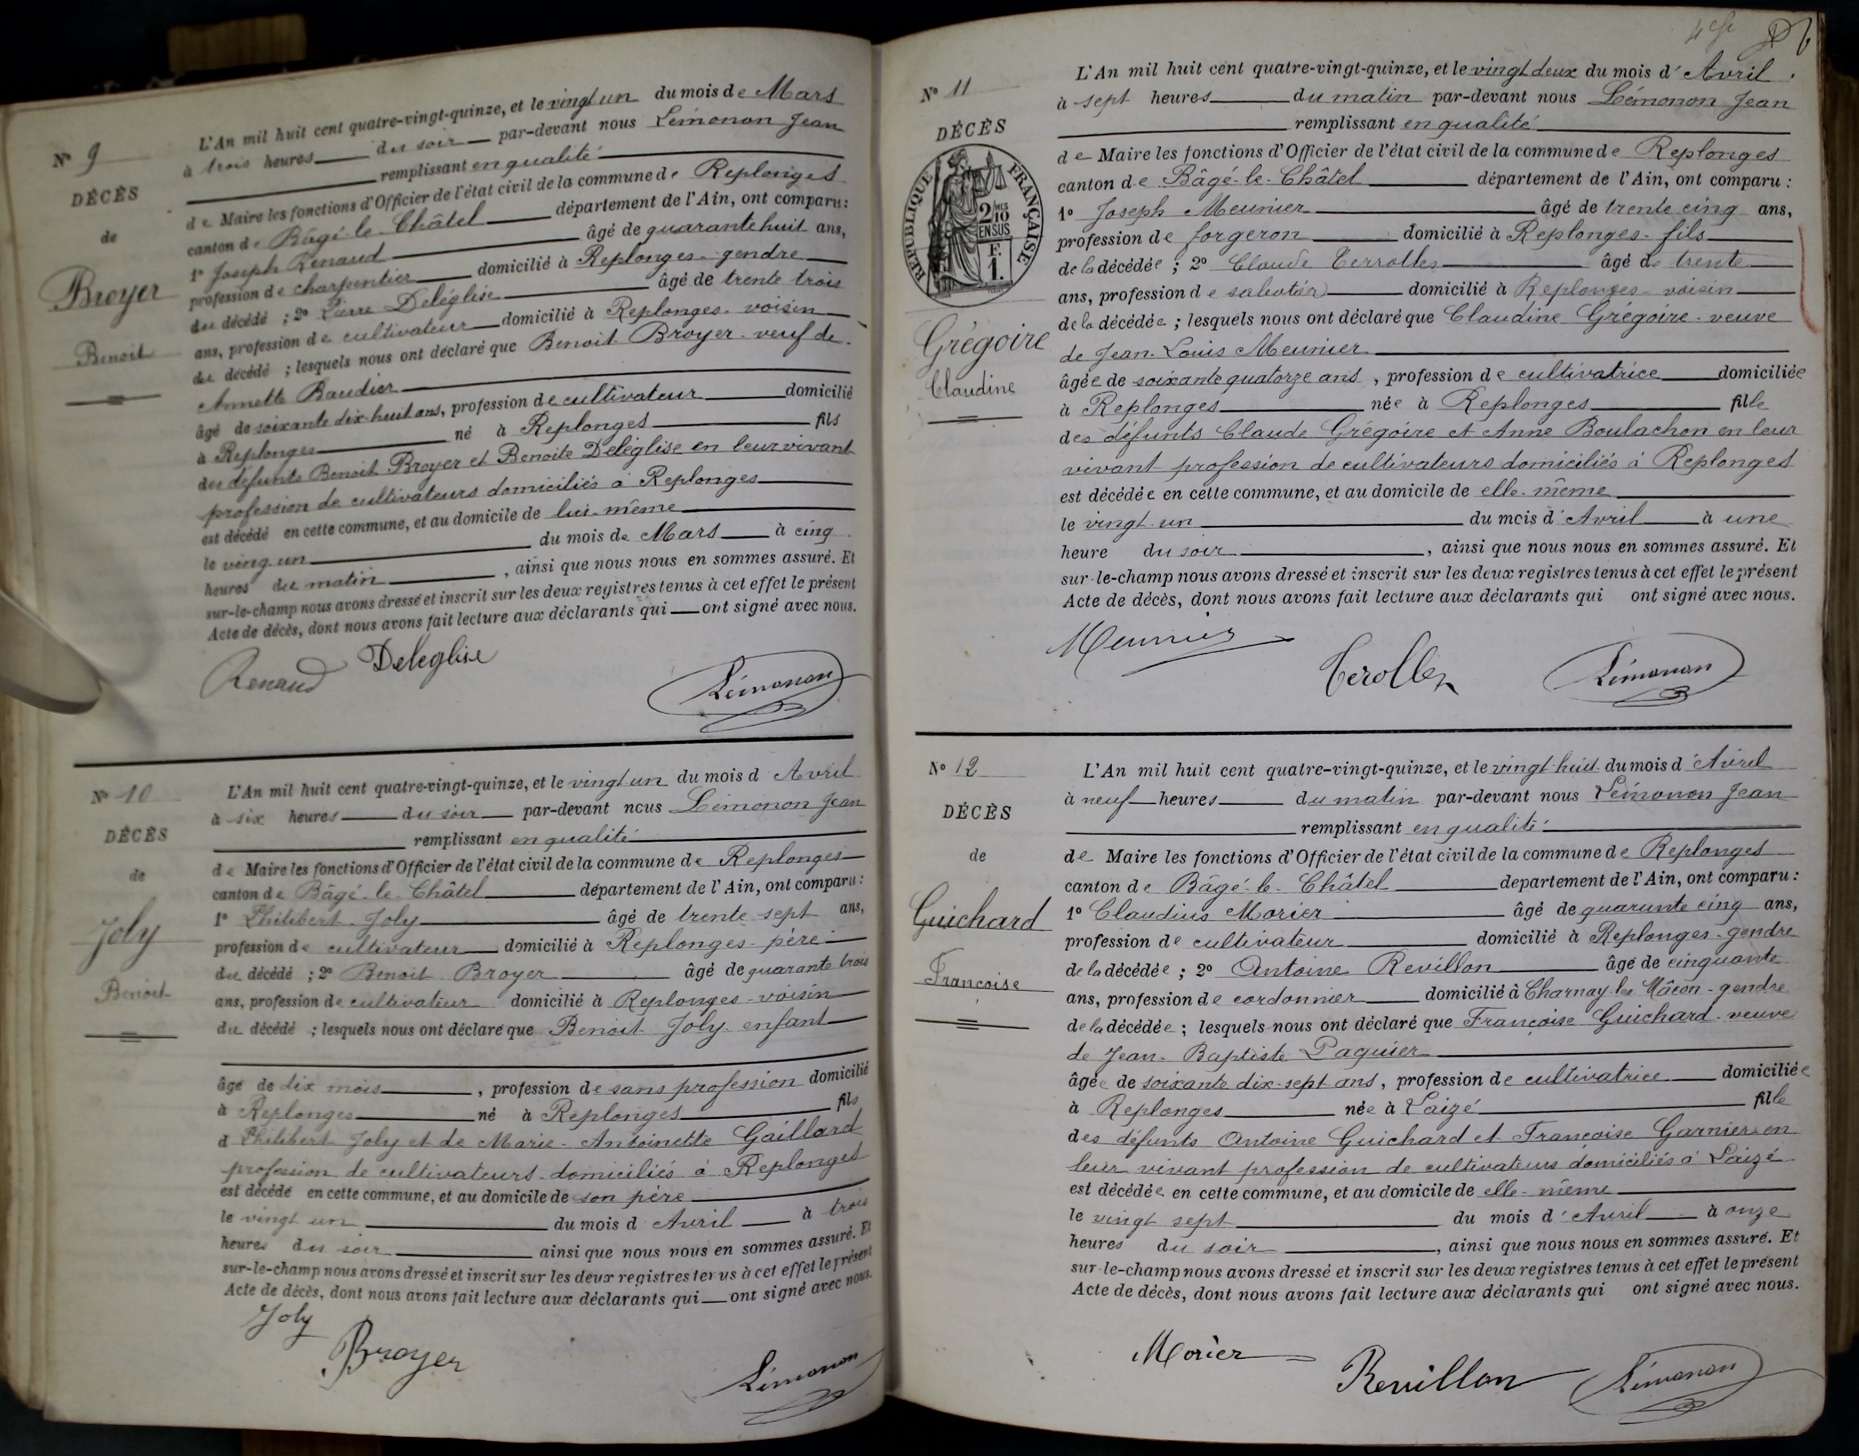 N° 9
DÉCÈS
de
Broyer
Benoit
L'An mil huit cent quatre-vingt-quinze, et le vingt un du mois de Mars
à trois heures du soir par-devant nous Lémonon Jean
remplissant en qualité
de Maire les fonctions d'Officier de l'état civil de la commune de Replonges
canton de Bâgé-le-Châtel département de l'Ain, ont comparu:
1° Joseph Renaud âgé de quarante huit ans,
profession de charpentier domicilié à Replonges - gendre
du décédé ; 2° Pierre Deléglise âgé de trente trois
ans, profession de cultivateur domicilié à Replonges - voisin
du décédé ; lesquels nous ont déclaré que Benoit Broyer - veuf de
Annette Baudier
âgé de soixante dix huit ans, profession de cultivateur domicilié
à Replonges né à Replonges fils
des défunts Benoit Broyer et Benoite Deléglise en leur vivant
profession de cultivateurs domiciliés à Replonges
est décédé en cette commune, et au domicile de lui-même
le ving-un du mois de Mars à cinq
heures du matin, ainsi que nous nous en sommes assuré. Et
sur-le-champ nous avons dressé et inscrit sur les deux registres tenus à cet effet le présent
Acte de décès, dont nous avons fait lecture aux déclarants qui ont signé avec nous.
Renaud Deléglise
Lémonon
N° 10
DÉCÈS
de
Joly
Benoit
L'An mil huit cent quatre-vingt-quinze, et le vingt un du mois d Avril
à six heures du soir par-devant nous Lémonon Jean
remplissant en qualité
de Maire les fonctions d'Officier de l'état civil de la commune de Replonges
canton de Bâgé-le-Châtel département de l'Ain, ont comparu:
1° Philibert Joly âgé de trente sept ans,
profession de cultivateur domicilié à Replonges - père
du décédé ; 2° Benoit Broyer âgé de quarante trois
ans, profession de cultivateur domicilié à Replonges - voisin
du décédé ; lesquels nous ont déclaré que Benoit Joly - enfant
âgé de dix mois, profession de sans profession domicilié
à Replonges né à Replonges fils
d Philibert Joly et de Marie-Antoinette Gaillard
profession de cultivateurs domiciliés à Replonges
est décédé en cette commune, et au domicile de son père
le vingt un du mois d Avril à trois
heures du soir ainsi que nous nous en sommes assuré. Et
sur-le-champ nous avons dressé et inscrit sur les deux registres tenus à cet effet le présent
Acte de décès, dont nous avons fait lecture aux déclarants qui ont signé avec nous.
Joly
Broyer
Lémonon
N° 11
DÉCÈS
RÉPUBLIQUE FRANÇAISE
2/10 EN SUS
F.
1.
Grégoire
Claudine
L'An mil huit cent quatre-vingt-quinze, et le vingt deux du mois d'Avril
à sept heures du matin par-devant nous Lémonon Jean
remplissant en qualité
de Maire les fonctions d'Officier de l'état civil de la commune de Replonges
canton de Bâgé-le-Châtel département de l'Ain, ont comparu :
1° Joseph Meunier âgé de trente cinq ans,
profession de forgeron domicilié à Replonges - fils
de la décédée ; 2° Claude Terrolles âgé de trente
ans, profession de sabotier domicilié à Replonges - voisin
de la décédée ; lesquels nous ont déclaré que Claudine Grégoire - veuve
de Jean-Louis Meunier
âgée de soixante quatorze ans, profession de cultivatrice domiciliée
à Replonges née à Replonges fille
des défunts Claude Grégoire et Anne Boulachon en leur
vivant profession de cultivateurs domiciliés à Replonges
est décédée en cette commune, et au domicile de elle-même
le vingt-un du mois d'Avril à une
heure du soir, ainsi que nous nous en sommes assuré. Et
sur-le-champ nous avons dressé et inscrit sur les deux registres tenus à cet effet le présent
Acte de décès, dont nous avons fait lecture aux déclarants qui ont signé avec nous.
Meunier
Terolles
Lémonon
N° 12
DÉCÈS
de
Guichard
Françoise
L'An mil huit cent quatre-vingt-quinze, et le vingt-huit du mois d'Avril
à neuf heures du matin par-devant nous Lémonon Jean
remplissant en qualité
de Maire les fonctions d'Officier de l'état civil de la commune de Replonges
canton de Bâgé-le-Châtel departement de l'Ain, ont comparu :
1° Claudius Morier âgé de quarante cinq ans,
profession de cultivateur domicilié à Replonges - gendre
de la décédée ; 2° Antoine Revillon âgé de cinquante
ans, profession de cordonnier domicilié à Charnay-les-Mâcon - gendre
de la décédée ; lesquels nous ont déclaré que Françoise Guichard - veuve
de Jean-Baptiste Paquier
âgée de soixante dix-sept ans, profession de cultivatrice domiciliée
à Replonges née à Laizé fille
des défunts Antoine Guichard et Françoise Garnier en
leur vivant profession de cultivateurs domiciliés à Laizé
est décédée en cette commune, et au domicile de elle-même
le vingt sept du mois d'Avril à onze
heures du soir, ainsi que nous nous en sommes assuré. Et
sur-le-champ nous avons dressé et inscrit sur les deux registres tenus à cet effet le présent
Acte de décès, dont nous avons fait lecture aux déclarants qui ont signé avec nous.
Morier
Revillon
Lémonon